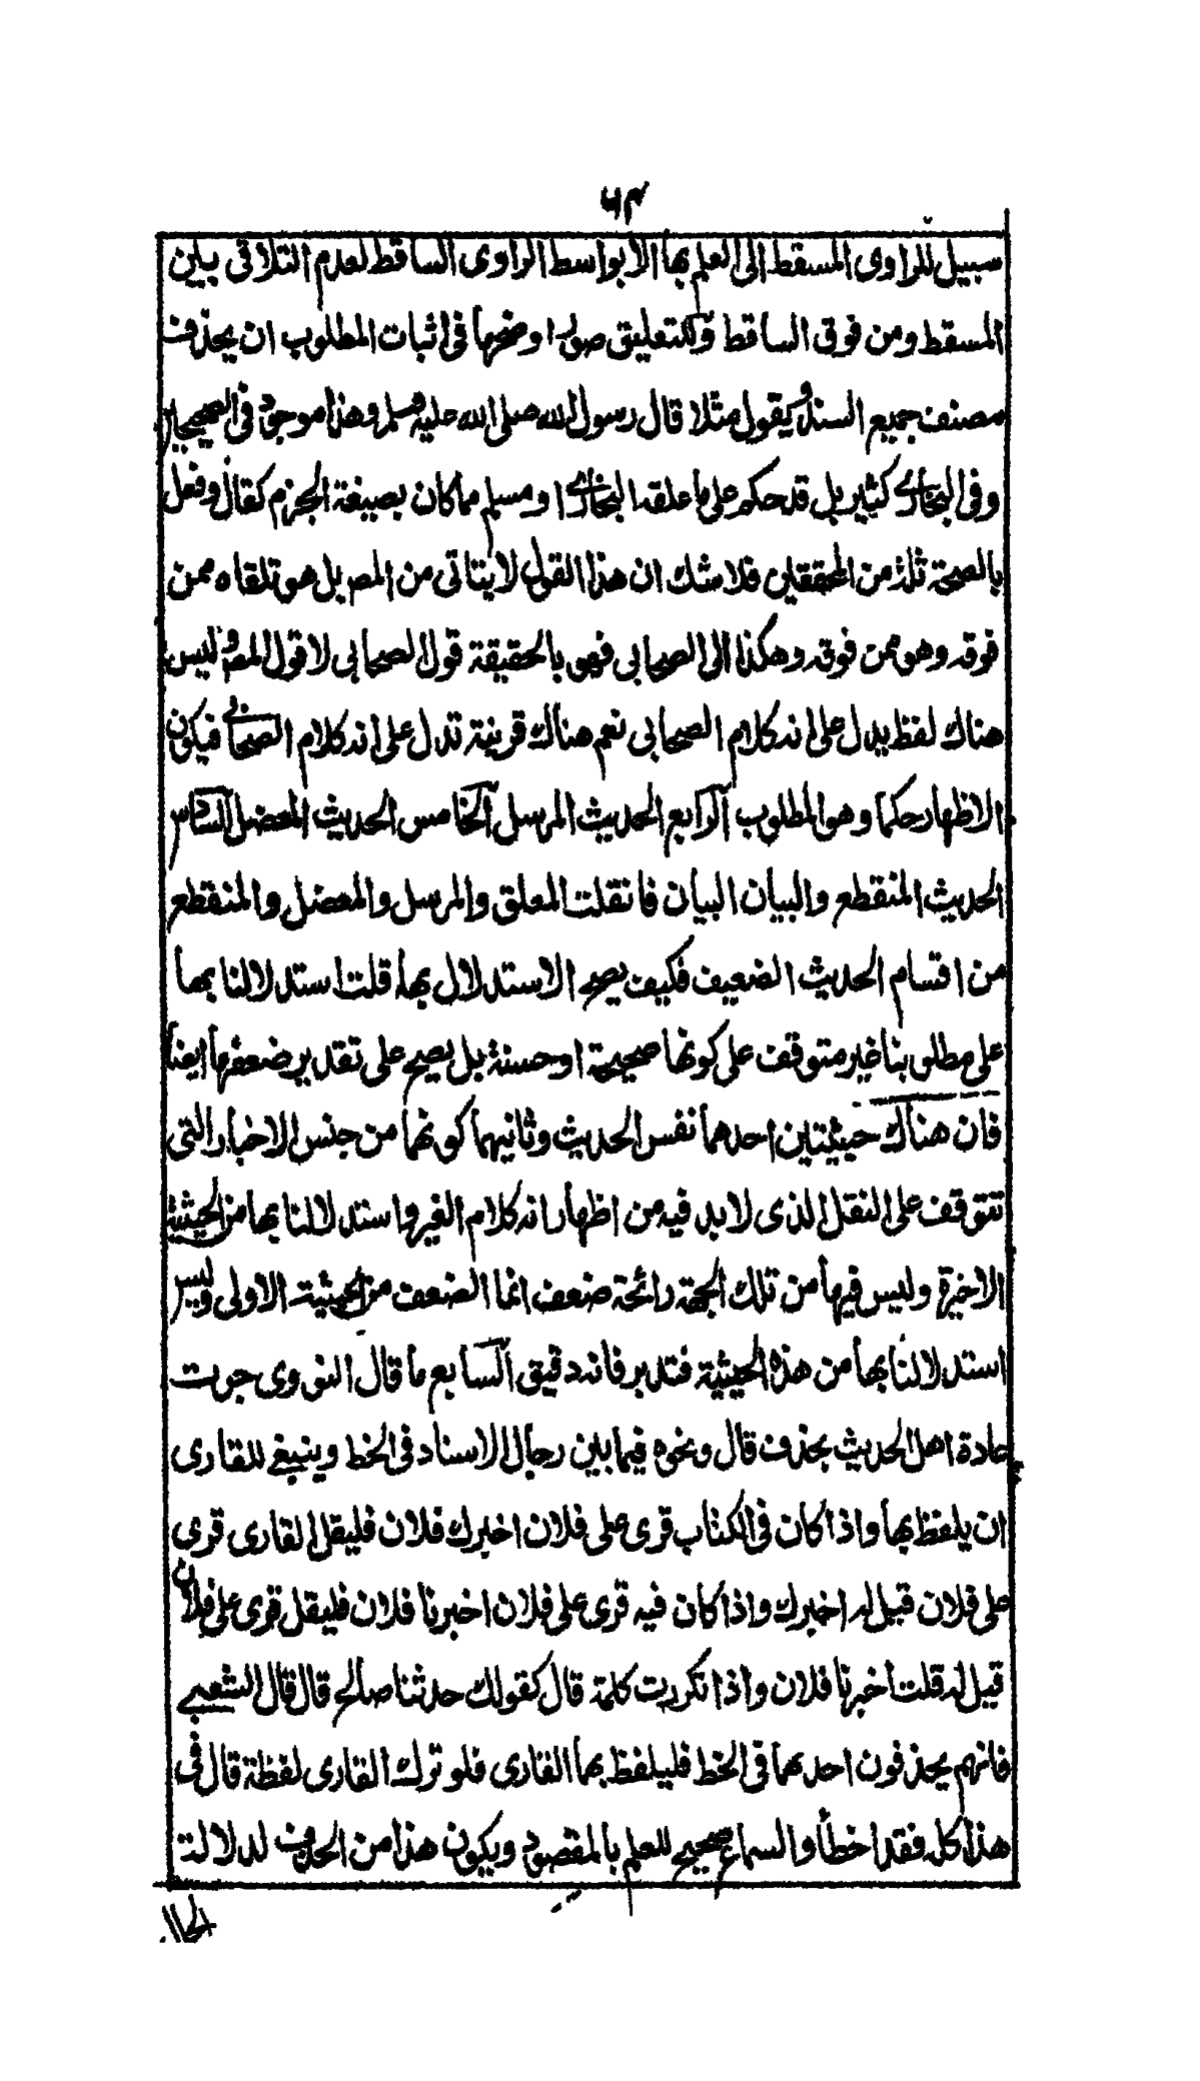 ٦٣
سبيل للراوى المسقط الى العلم بها الا بواسط الراوى الساقط لعدم التلاقى بين
المسقط ومن فوق الساقط وللتعليق صور اوضحها فى اثبات المطلوب ان يحذف
مصنف جميع السند ويقول مثلا قال رسول الله صلى الله عليه وسلم وهذا موجود فى الصحيحين
وفى البخارى كثير بل قد حكم على ما علقه البخارى او مسلم مما كان بصيغة الجزم كقال وفعل
بالصحة ثلة من المحققين فلا شك ان هذا القول لا يتاتى من المصـ بل هو تلقاه ممن
فوقه وهو ممن فوقه وهكذا الى الصحابى فهو بالحقيقة قول الصحابى لا قول المصـ وليس
هناك لفظ يدل على انه كلام الصحابى نعم هناك قرينة تدل على انه كلام الصحابى فيكون
الاظهار حكما وهو المطلوب الرابع الحديث المرسل الخامس الحديث المعضل السادس
الحديث المنقطع والبيان البيان فان قلت المعلق والمرسل والمعضل والمنقطع
من اقسام الحديث الضعيف فكيف يصح الاستدلال بها قلت استدلالنا بها
على مطلوبنا غير متوقف على كونها صحيحة او حسنة بل يصح على تقدير ضعفها ايضا
فان هناك حيثيتين احدهما نفس الحديث وثانيهما كونها من جنس الاخبار التى
تتوقف على النقل الذى لا بد فيه من اظهار انه كلام الغير واستدلالنا بها من الحيثية
الاخيرة وليس فيها من تلك الجهة رائحة ضعف انما الضعف من الحيثية الاولى وليس
استدلالنا بها من هذه الحيثية فتدبر فانه دقيق السابع ما قال النووى جرت
عادة اهل الحديث بحذف قال ونحوه فيما بين رجال الاسناد فى الخط وينبغى للقارى
ان يلفظ بها واذا كان فى الكتاب قرى على فلان اخبرك فلان فليقل القارى قرى
على فلان قيل له اخبرك واذا كان فيه قرى على فلان اخبرنا فلان فليقل قرى على فلان
قيل له قلت اخبرنا فلان واذا تكررت كلمة قال كقولك حدثنا صالح قال قال الشعبى
فانهم يحذفون احدهما فى الخط فليلفظ بهما القارى فلو ترك القارى لفظة قال فى
هذا كله فقد اخطأ والسماع صحيح للعلم بالمقصود ويكون هذا من الحذف لدلالة
الحال